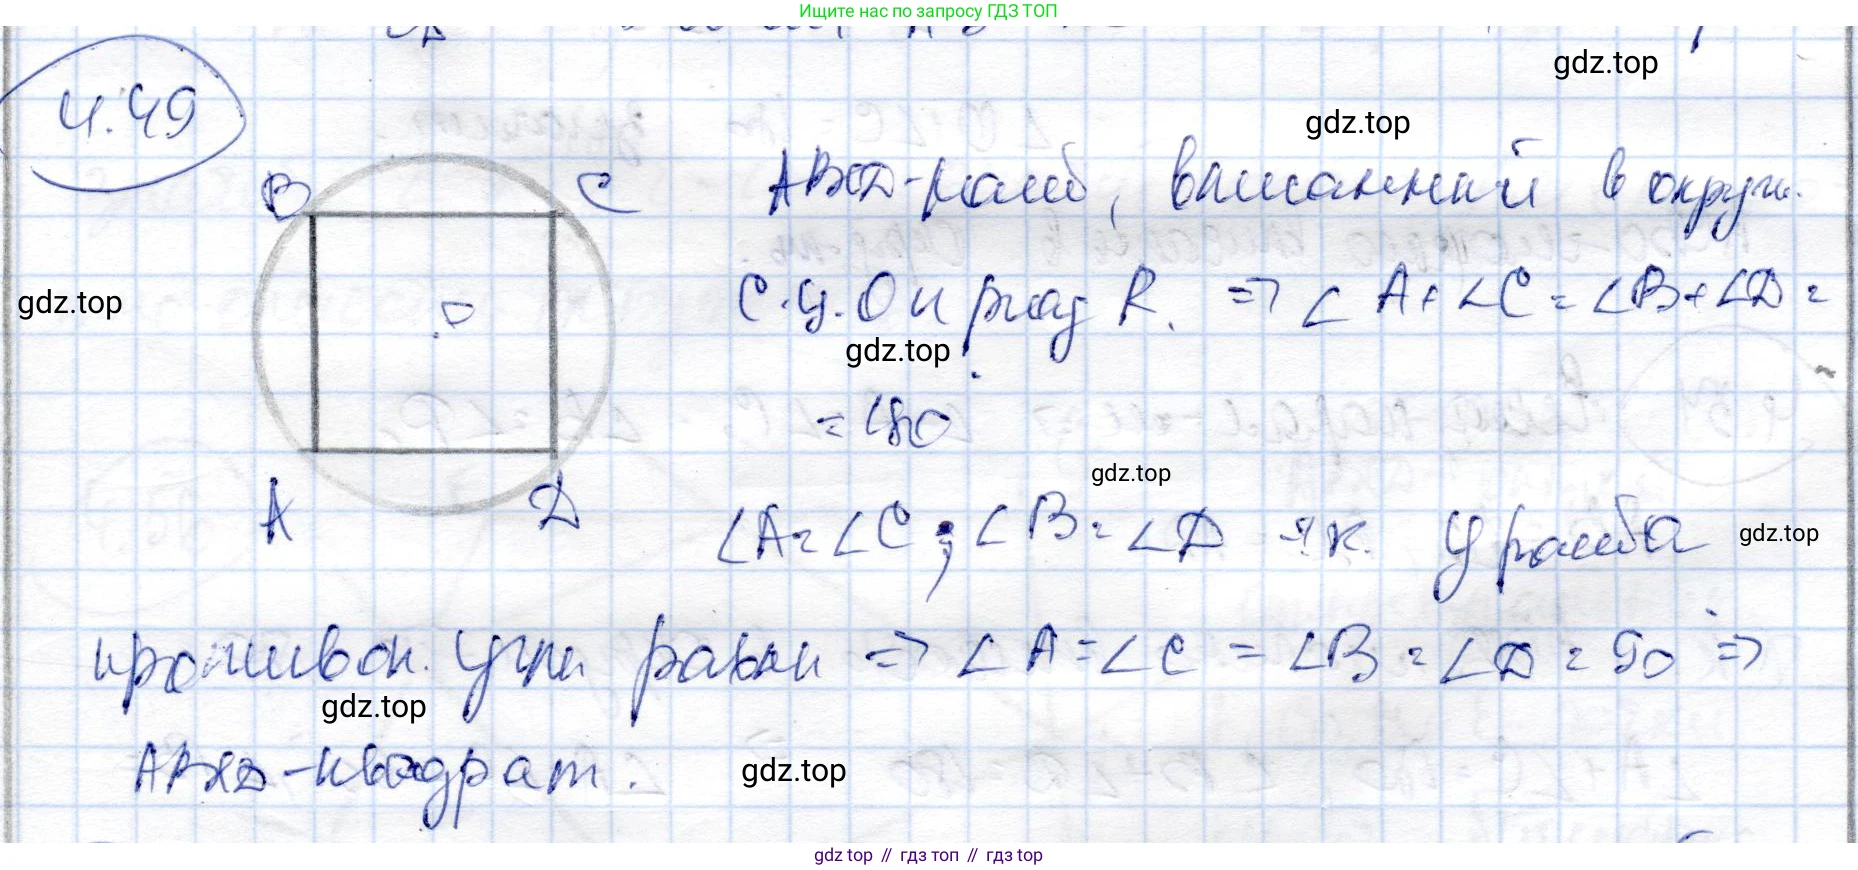 Ищите нас по запросу ГДЗ ТОП
gdz.top
4.49
gdz.top
B C ABCD-ромб, вписанный в окруж.
gdz.top
с.ц. O и рад R. => ∠A+∠C=∠B+∠D=
O
gdz.top
=180
gdz.top
A D ∠A=∠C; ∠B=∠D т.к. у ромба
gdz.top
противоп. углы равны => ∠A=∠C=∠B=∠D=90 =>
gdz.top
ABCD-квадрат.
gdz.top
gdz top // гдз топ // гдз top